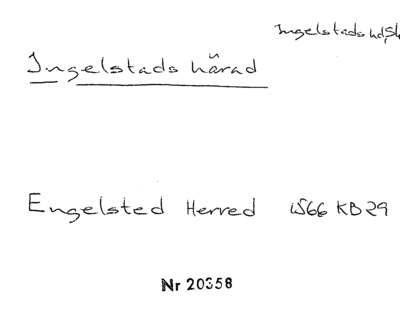 Ingelstads hd, Sk
Ingelstads härad
Engelsted Herred 1566 KB 29
Nr 20358